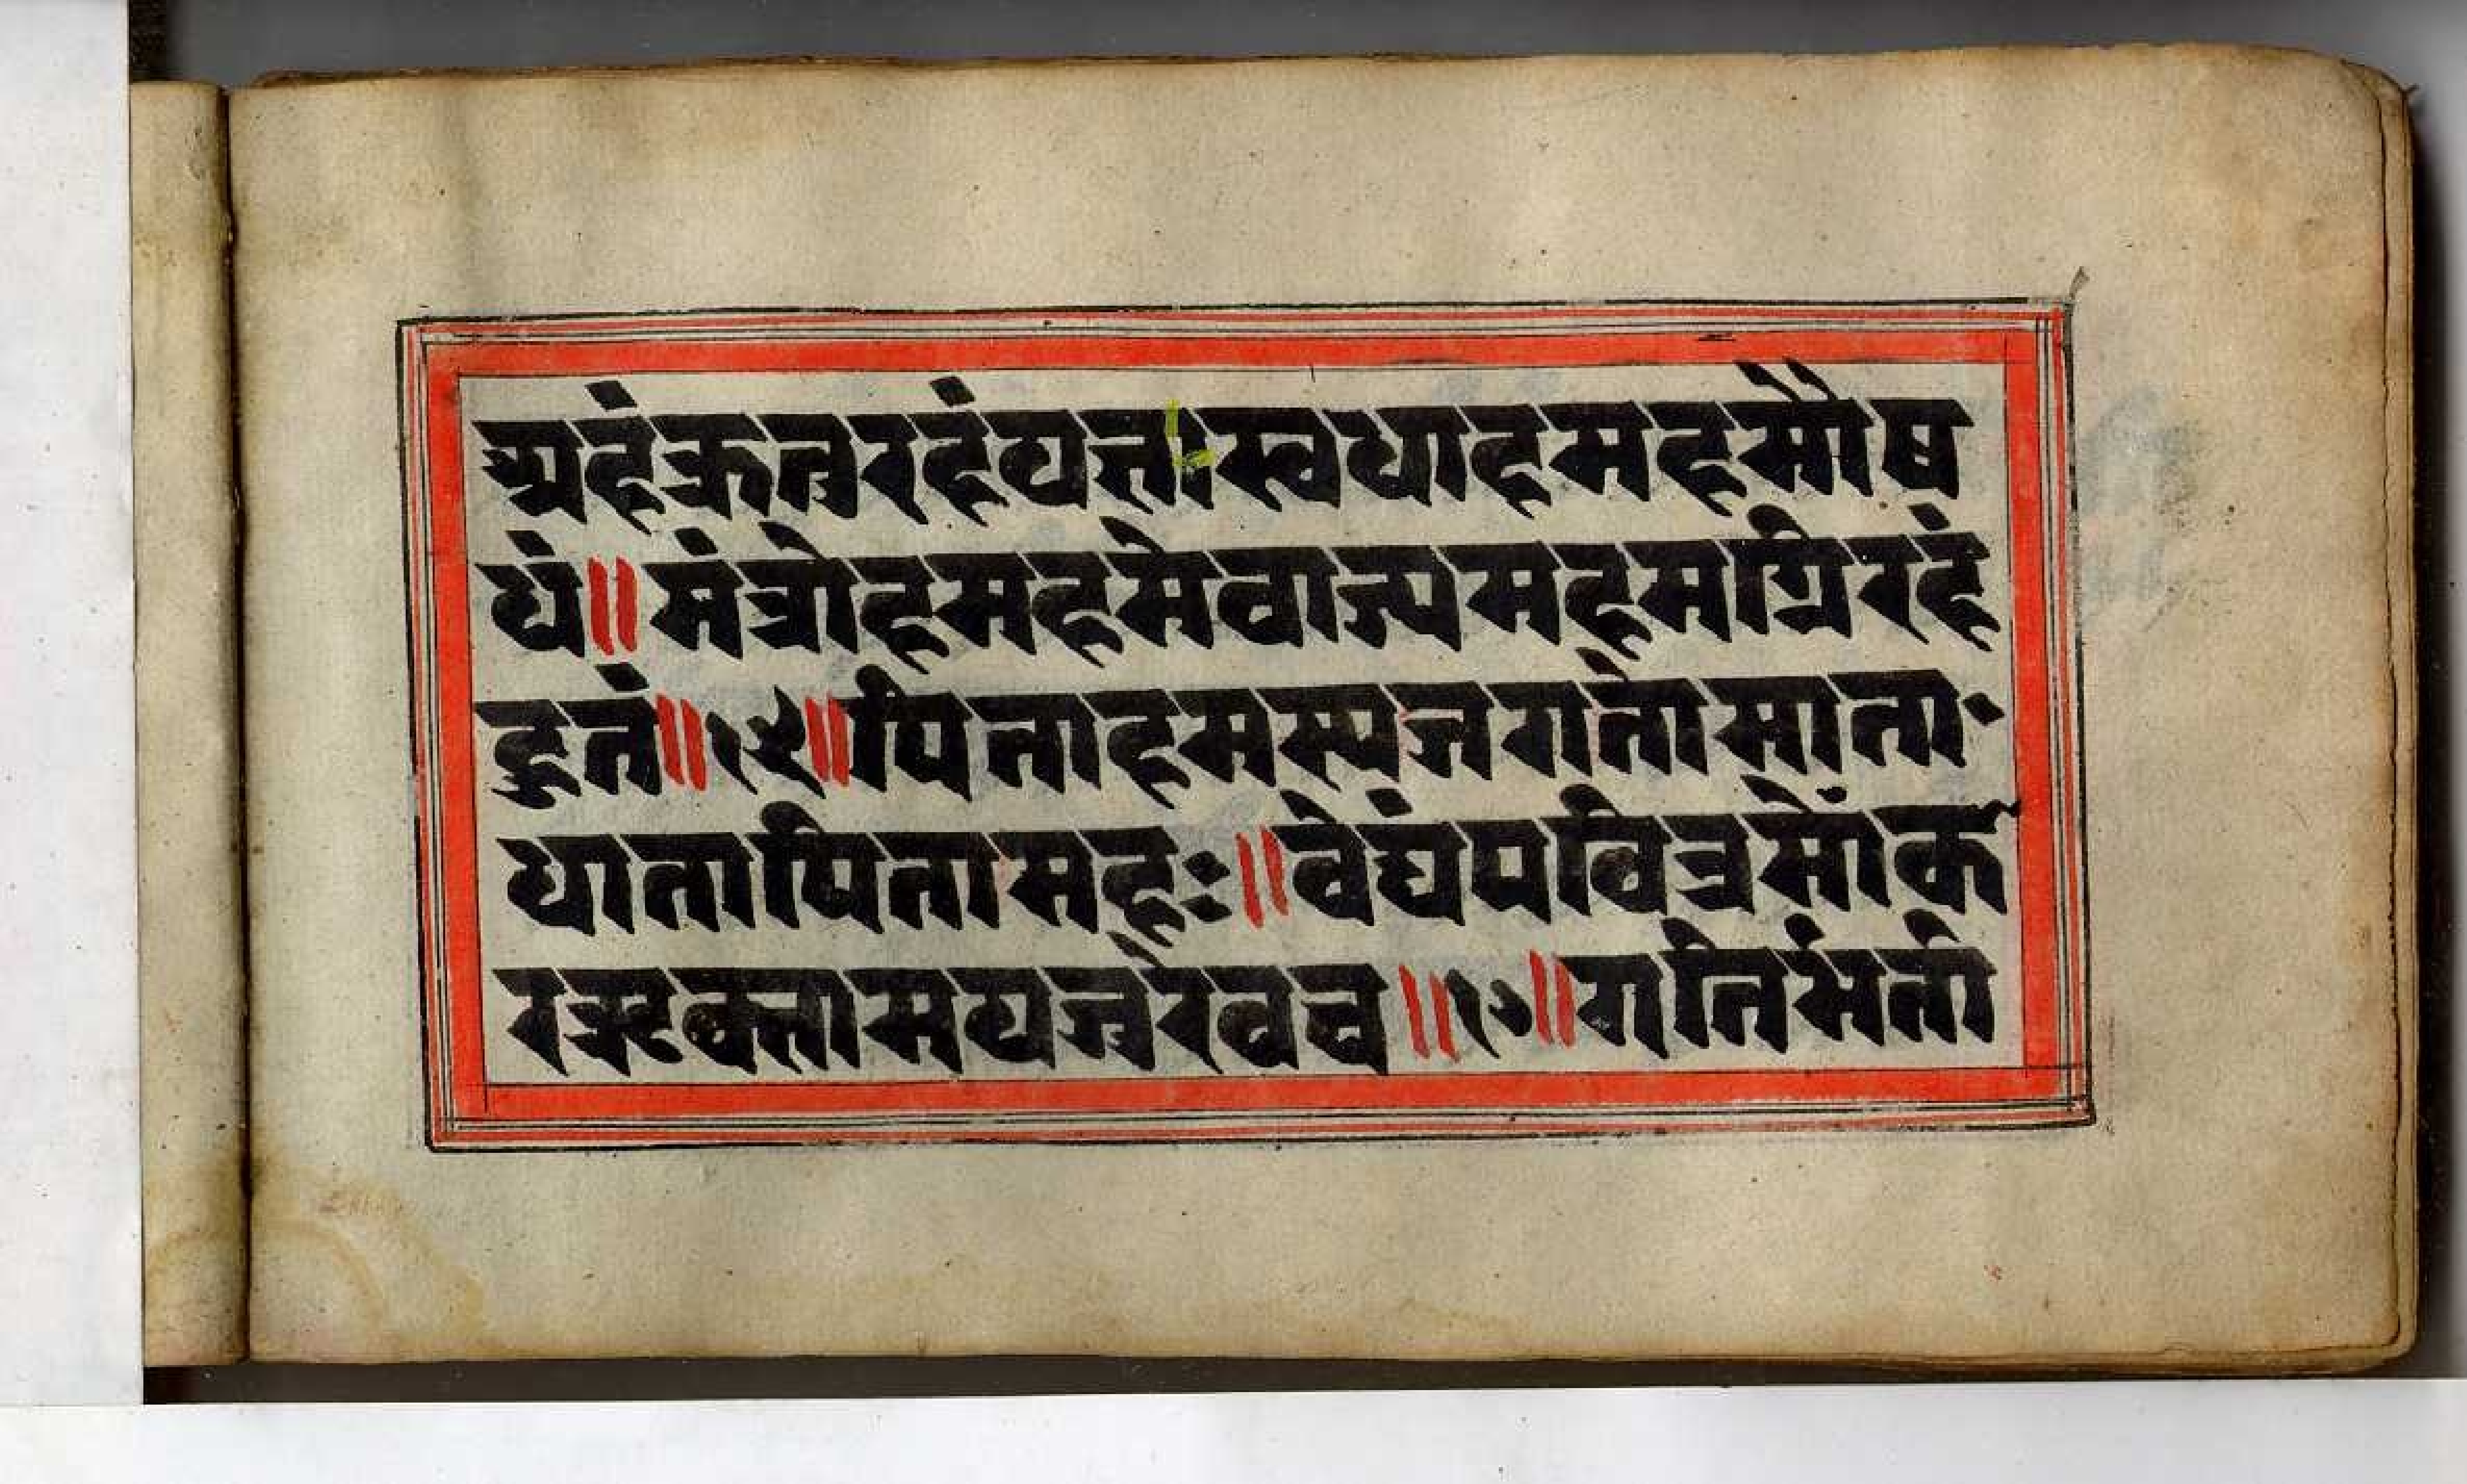 अहंक्रतुरहंयज्ञःस्वधाहमहमौष
धं॥मंत्रोहमहमेवाज्यमहमग्निरहं
हुतं॥१६॥पिताहमस्यजगतोमाता
धातापितामहः॥वेद्यंपवित्रमोंका
रऋक्सामयजुरेवच॥१७॥गतिर्भर्ता